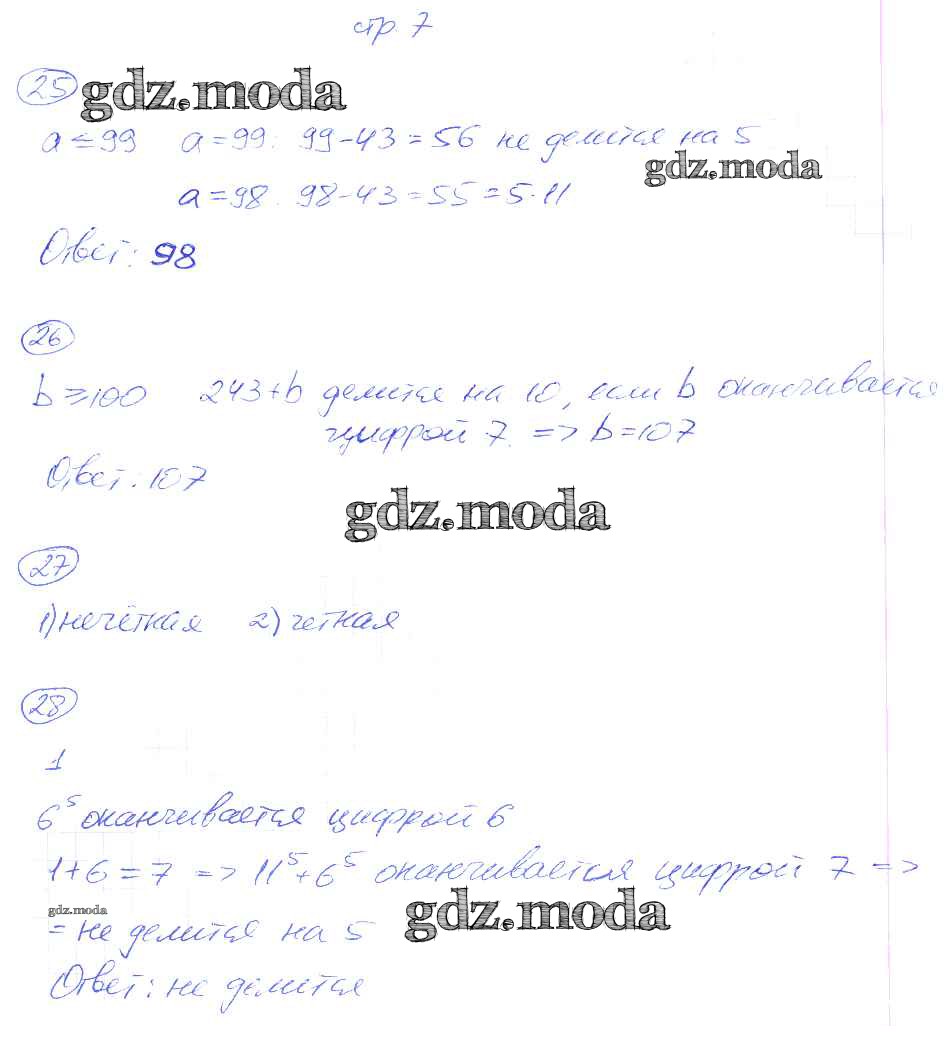 стр. 7
25 gdz.moda
a ≤ 99 a = 99: 99 - 43 = 56 не делится на 5
gdz.moda
a = 98. 98 - 43 = 55 = 5·11
Ответ: 98
26
b ≥ 100 243 + b делится на 10, если b оканчивается
цифрой 7. => b = 107
Ответ: 107
gdz.moda
27
1) нечётная 2) четная
28
1
6⁵ оканчивается цифрой 6
1 + 6 = 7 => 11⁵ + 6⁵ оканчивается цифрой 7 =>
gdz.moda
gdz.moda
= не делится на 5
Ответ: не делится